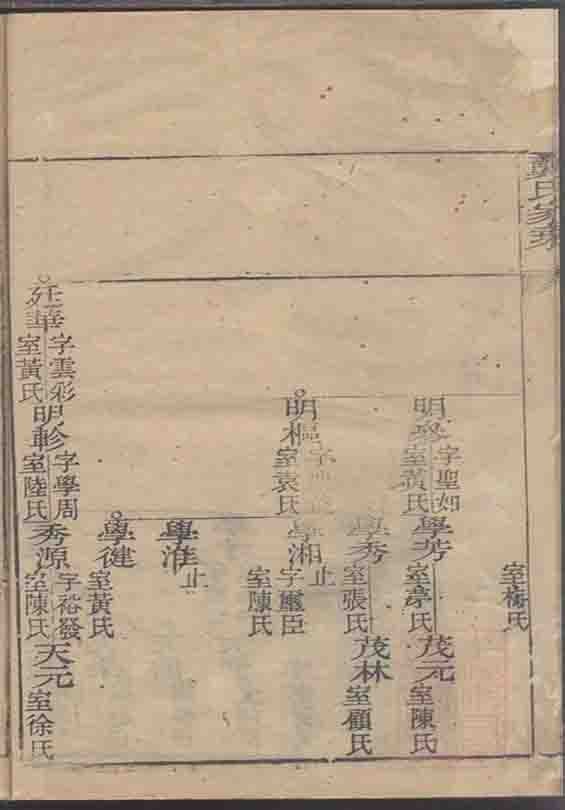 氏家
室梅氏
明
字聖如
室黃氏
學芳
室
氏
茂元
室陳氏
學秀
室張氏
茂林
室顧氏
明樞
字
室袁氏
學湘
止
字璽臣
室陳氏
學淮
止
學健
室黃氏
廷華
字雲彩
室黃氏
明軫
字學周
室陸氏
秀源
字裕發
室陳氏
天元
室徐氏